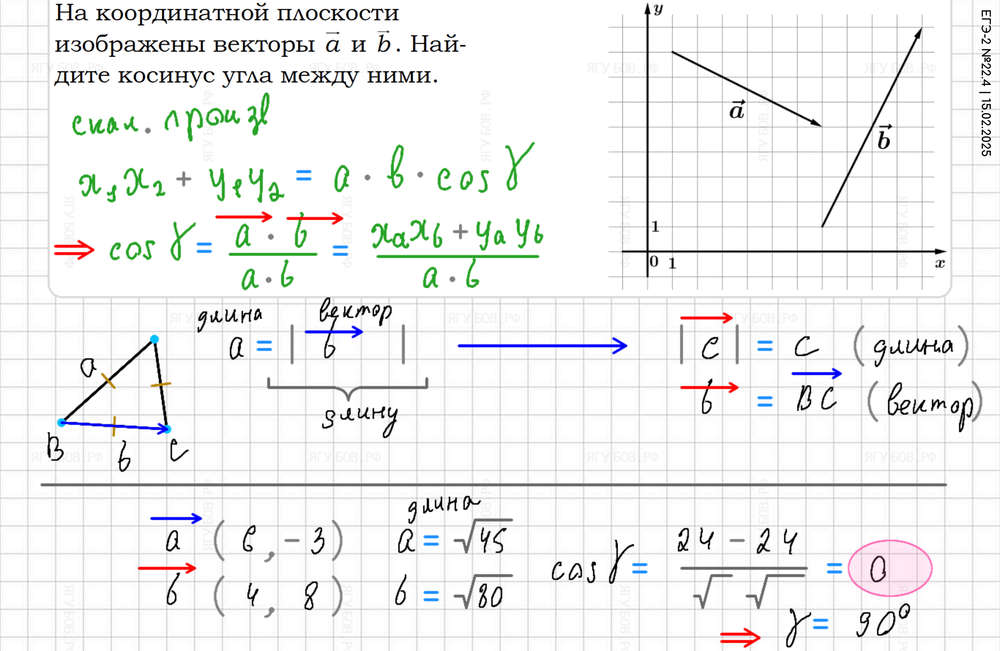 На координатной плоскости
изображены векторы a⃗ и b⃗. Най-
дите косинус угла между ними.
y
a⃗
b⃗
1
0 1 x
ЕГЭ-2 №22.4 | 15.02.2025
скал. произв
x₁x₂ + y₁y₂ = a · b · cos γ
⇒ cos γ = (a⃗ · b⃗)/(a · b) = (xₐx_b + yₐy_b)/(a · b)
длина вектор
a = |b⃗| → |c⃗| = c (длина)
b⃗ = BC⃗ (вектор)
длину
a
B b C
длина
a⃗ (6, -3) a = √45
b⃗ (4, 8) b = √80
cos γ = (24 - 24)/(√ √) = 0
⇒ γ = 90°